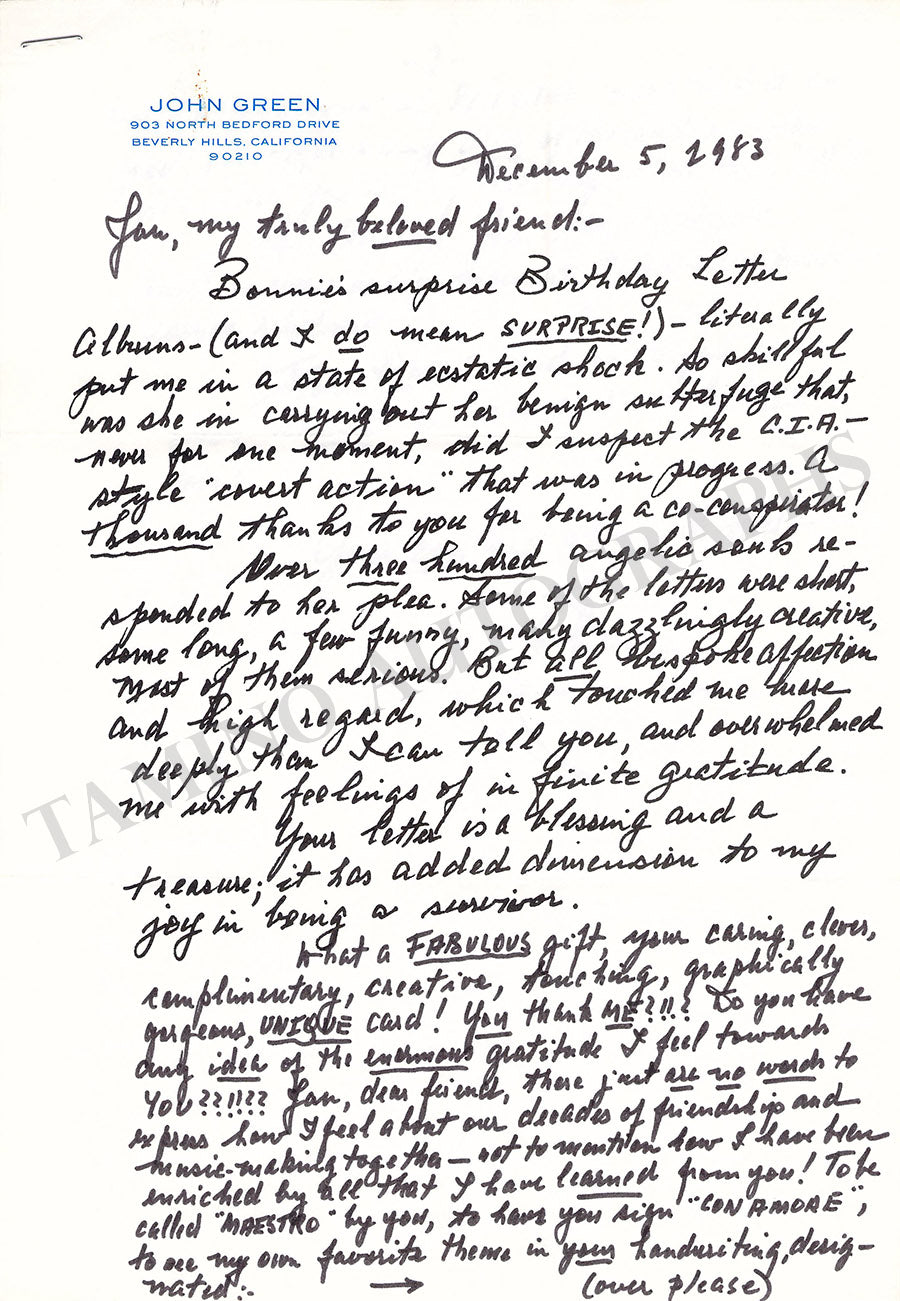 JOHN GREEN
903 NORTH BEDFORD DRIVE
BEVERLY HILLS, CALIFORNIA
90210
December 5, 1983
Jan, my truly beloved friend:-
Bonnie's surprise Birthday Letter
Albums-(and I do mean SURPRISE!)- literally
put me in a state of ecstatic shock. So skillful
was she in carrying out her benign subterfuge that,
never for one moment, did I suspect the C.I.A.-
style "covert action" that was in progress. A
thousand thanks to you for being a co-conspirator!
Over three hundred angelic souls re-
sponded to her plea. Some of the letters were short,
some long, a few funny, many dazzlingly creative,
most of them serious. But all bespoke affection
and high regard, which touched me more
deeply than I can tell you, and overwhelmed
me with feelings of infinite gratitude.
Your letter is a blessing and a
treasure; it has added dimension to my
joy in being a survivor.
What a FABULOUS gift, your caring, clever,
complimentary, creative, touching, graphically
gorgeous, UNIQUE card! You thank ME?!!? Do you have
any idea of the enormous gratitude I feel towards
YOU??!!?? Jan, dear friend, there just are no words to
express how I feel about our decades of friendship and
music-making together - not to mention how I have been
enriched by all that I have learned from you! To be
called "MAESTRO" by you, to have you sign "CON AMORE",
to see my own favorite theme in your handwriting, desig-
nated:- → (over please)
TAMINO AUTOGRAPHS